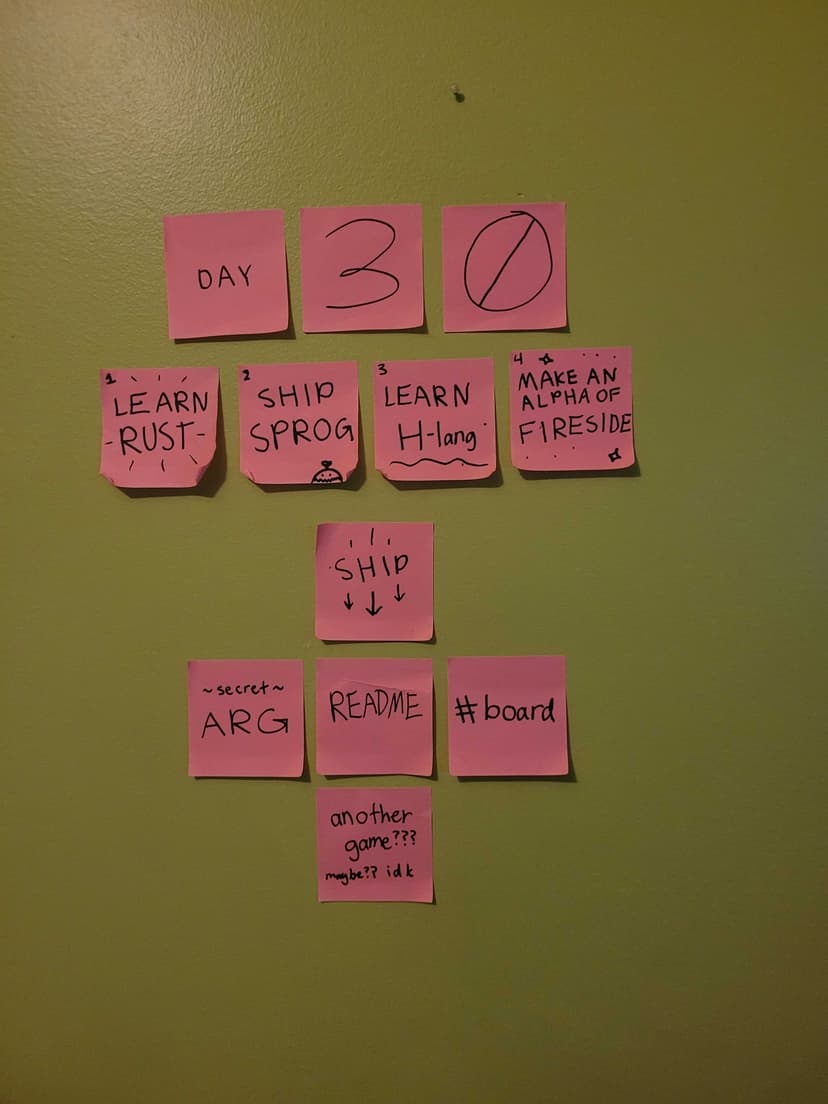 DAY
3
0
1
LEARN
-RUST-
2
SHIP
SPROG
3
LEARN
H-lang
4
MAKE AN
ALPHA OF
FIRESIDE
SHIP
↓ ↓ ↓
~secret~
ARG
README
#board
another
game???
maybe?? idk